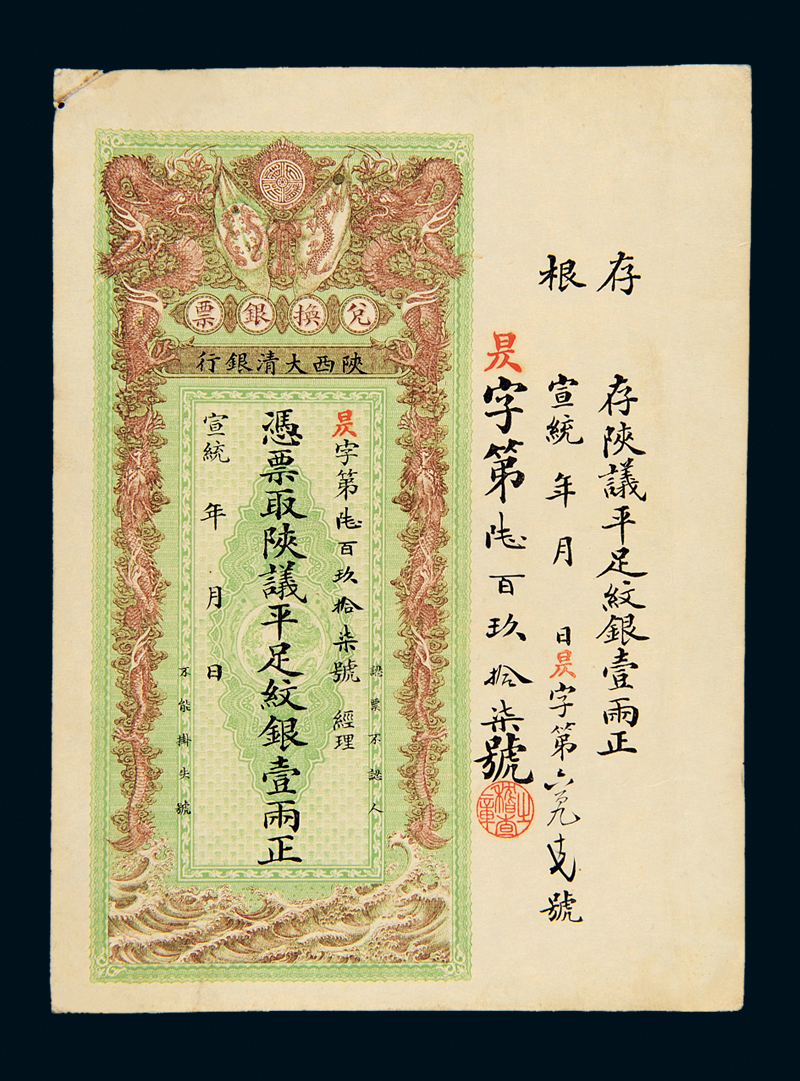 存根
存陝議平足紋銀壹兩正
宣統 年 月 日昃字第六百九十七號
昃字第陸百玖拾柒號
稽查之章
兌換銀票
陝西大清銀行
認票不認人
昃字第陸百玖拾柒號 經理
憑票取陝議平足紋銀壹兩正
宣統 年 月 日
不能掛失號